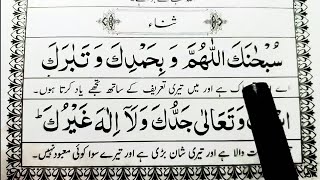 ثناء
سُبْحٰنَكَ اللّٰهُمَّ وَ بِحَمْدِكَ وَ تَبٰرَكَ
اے ہے اور میں تیری تعریف کے ساتھ تجھے یاد کرتا ہوں۔
وَ تَعَالٰى جَدُّكَ وَ لَا اِلٰهَ غَيْرُكَ ؕ
والا ہے اور تیری شان بڑی ہے اور تیرے سوا کوئی معبود نہیں۔